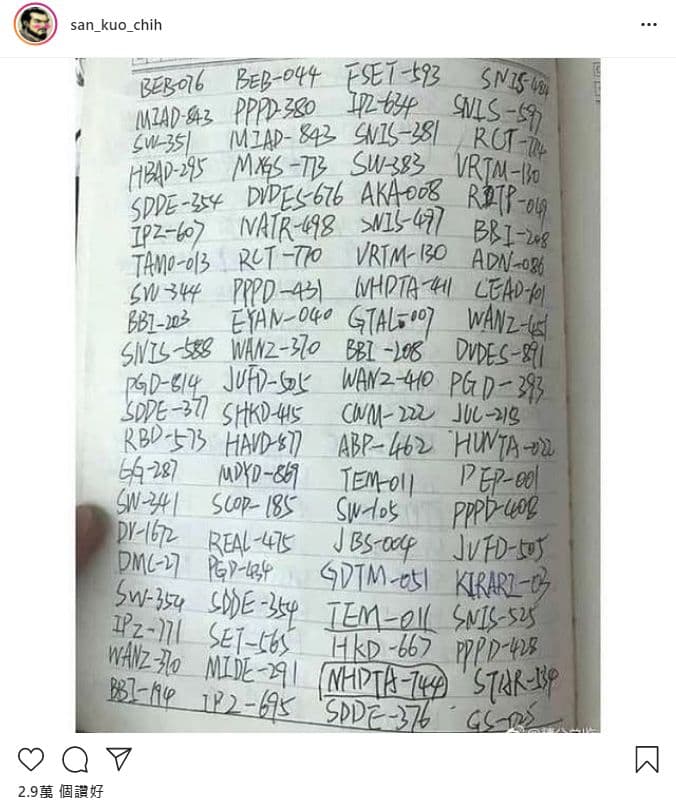 san_kuo_chih
BEB-076 BEB-044 FSET-593 SNIS-484
MIAD-843 PPPD-380 IPZ-634 SNIS-597
SW-351 MIAD-843 SNIS-381 RCT-714
HBAD-295 MXGS-773 SW-383 VRTM-130
SDDE-354 DVDES-676 AKA-008
IPZ-607 NATR-498 SNIS-497 BBI-208
TAMO-013 RCT-770 VRTM-130 ADN-086
SW-344 PPPD-431 NHDTA-411 LEAD-101
BBI-203 EYAN-040 GTAL-007 WANZ-451
SNIS-588 WANZ-370 BBI-208 DVDES-891
PGD-814 JUFD-505 WANZ-410 PGD-393
SDDE-377 SHKD-415 CWM-222 JUC-218
RBD-573 HAVD-877 ABP-462 HUNTA-022
GG-287 MDYD-869 TEM-011 PEP-001
SW-341 SCOP-185 SW-105 PPPD-408
DV-1672 REAL-475 JBS-004 JUFD-505
DMC-27 PGD-434 GDTM-051 KIRARI-03
SW-354 SDDE-354 TEM-011 SNIS-525
IPZ-771 SET-565 HKD-667 PPPD-428
WANZ-370 MIDE-291 NHDTA-744 STAR-534
BBI-194 IPZ-695 SDDE-376
2.9萬 個讚好